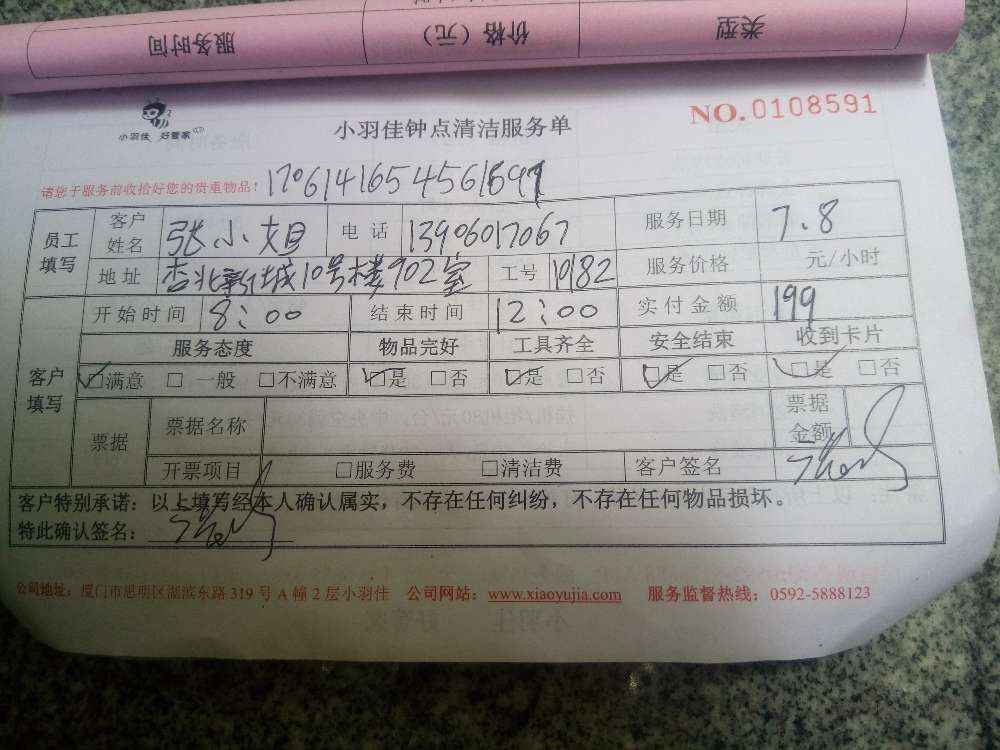 服务时间 价格（元） 类型
小羽佳 好管家
小羽佳钟点清洁服务单
NO.0108591
请您于服务前收拾好您的贵重物品！
员工填写 客户姓名 张小姐 电话 13906017067 服务日期 7.8
地址 杏北新城10号楼902室 工号 10182 服务价格 元/小时
客户填写 开始时间 8:00 结束时间 12:00 实付金额 199
服务态度 物品完好 工具齐全 安全结束 收到卡片
☑满意 □ 一般 □不满意 ☑是 □否 ☑是 □否 ☑是 □否 ☑是 □否
票据 票据名称 票据金额
开票项目 □服务费 □清洁费 客户签名
客户特别承诺：以上填写经本人确认属实，不存在任何纠纷，不存在任何物品损坏。
特此确认签名：
公司地址：厦门市思明区湖滨东路 319 号 A 幢 2 层小羽佳 公司网站：www.xiaoyujia.com 服务监督热线：0592-5888123